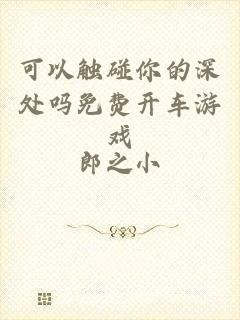 可以触碰你的深
处吗免费开车游
戏
郎之小